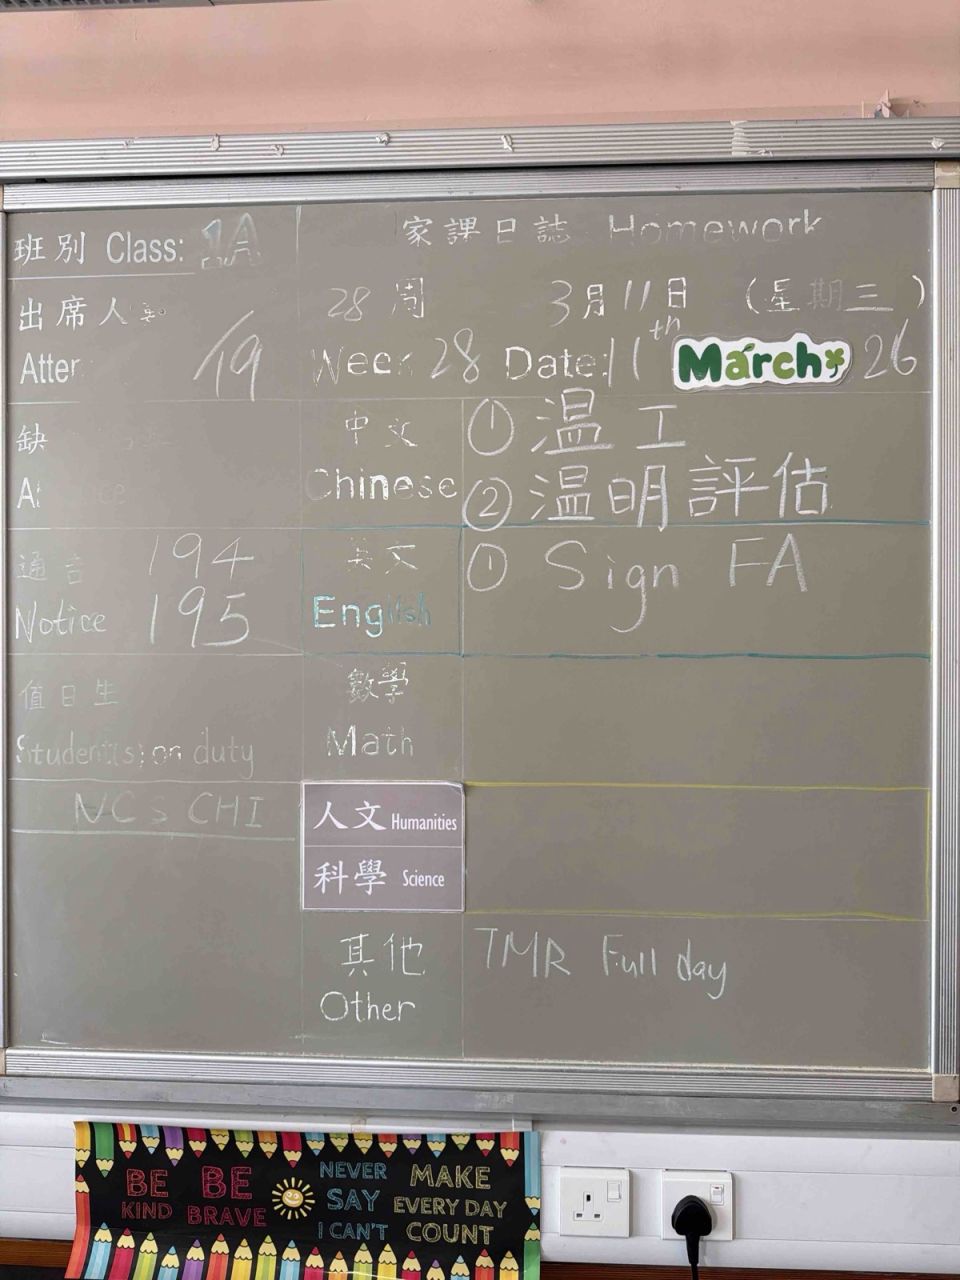 班別 Class: 1A
家課日誌 Homework
出席人數
28周 3月11日 (星期三)
Atten /19
Week 28 Date: 11th March 26
缺
中文 Chinese
① 温工
② 温明評估
通告 194
Notice 195
英文 English
① Sign FA
值日生
Student(s) on duty
數學
Math
NCS CHI
人文 Humanities
科學 Science
其他
Other
TMR Full day
BE KIND
BE BRAVE
NEVER SAY I CAN'T
MAKE EVERY DAY COUNT